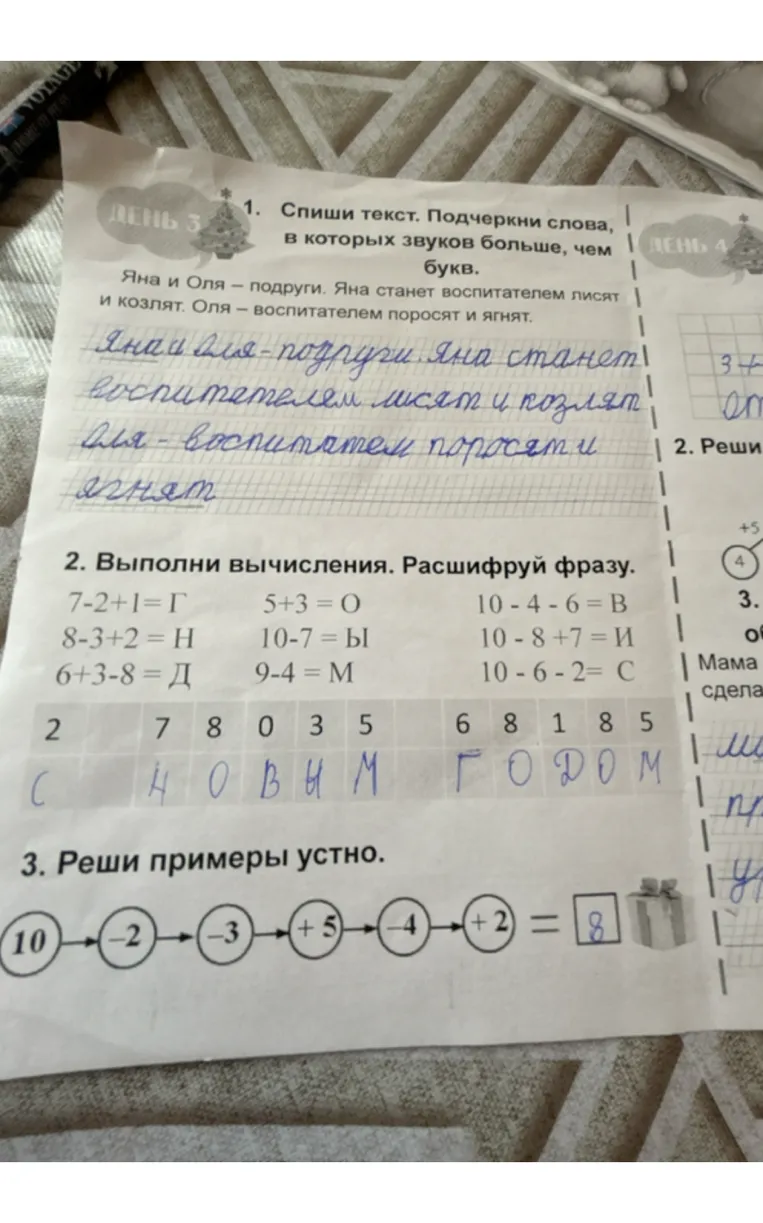 VOYAGE
ДЕНЬ 3
1. Спиши текст. Подчеркни слова,
в которых звуков больше, чем
букв.
Яна и Оля – подруги. Яна станет воспитателем лисят
и козлят. Оля – воспитателем поросят и ягнят.
Яна и Оля - подруги. Яна станет
воспитателем лисят и козлят
Оля - воспитатем поросят и
ягнят
2. Выполни вычисления. Расшифруй фразу.
7-2+1= Г 5+3 = О 10 - 4 - 6 = В
8-3+2 = Н 10-7 = Ы 10 - 8 +7 = И
6+3-8 = Д 9-4 = М 10 - 6 - 2= С
2 7 8 0 3 5 6 8 1 8 5
С Н О В Ы М Г О Д О М
3. Реши примеры устно.
10 –2 –3 + 5 –4 + 2 = 8
ДЕНЬ 4
3+
от
2. Реши
+5
4
3.
об
Мама
сдела
ми
пр